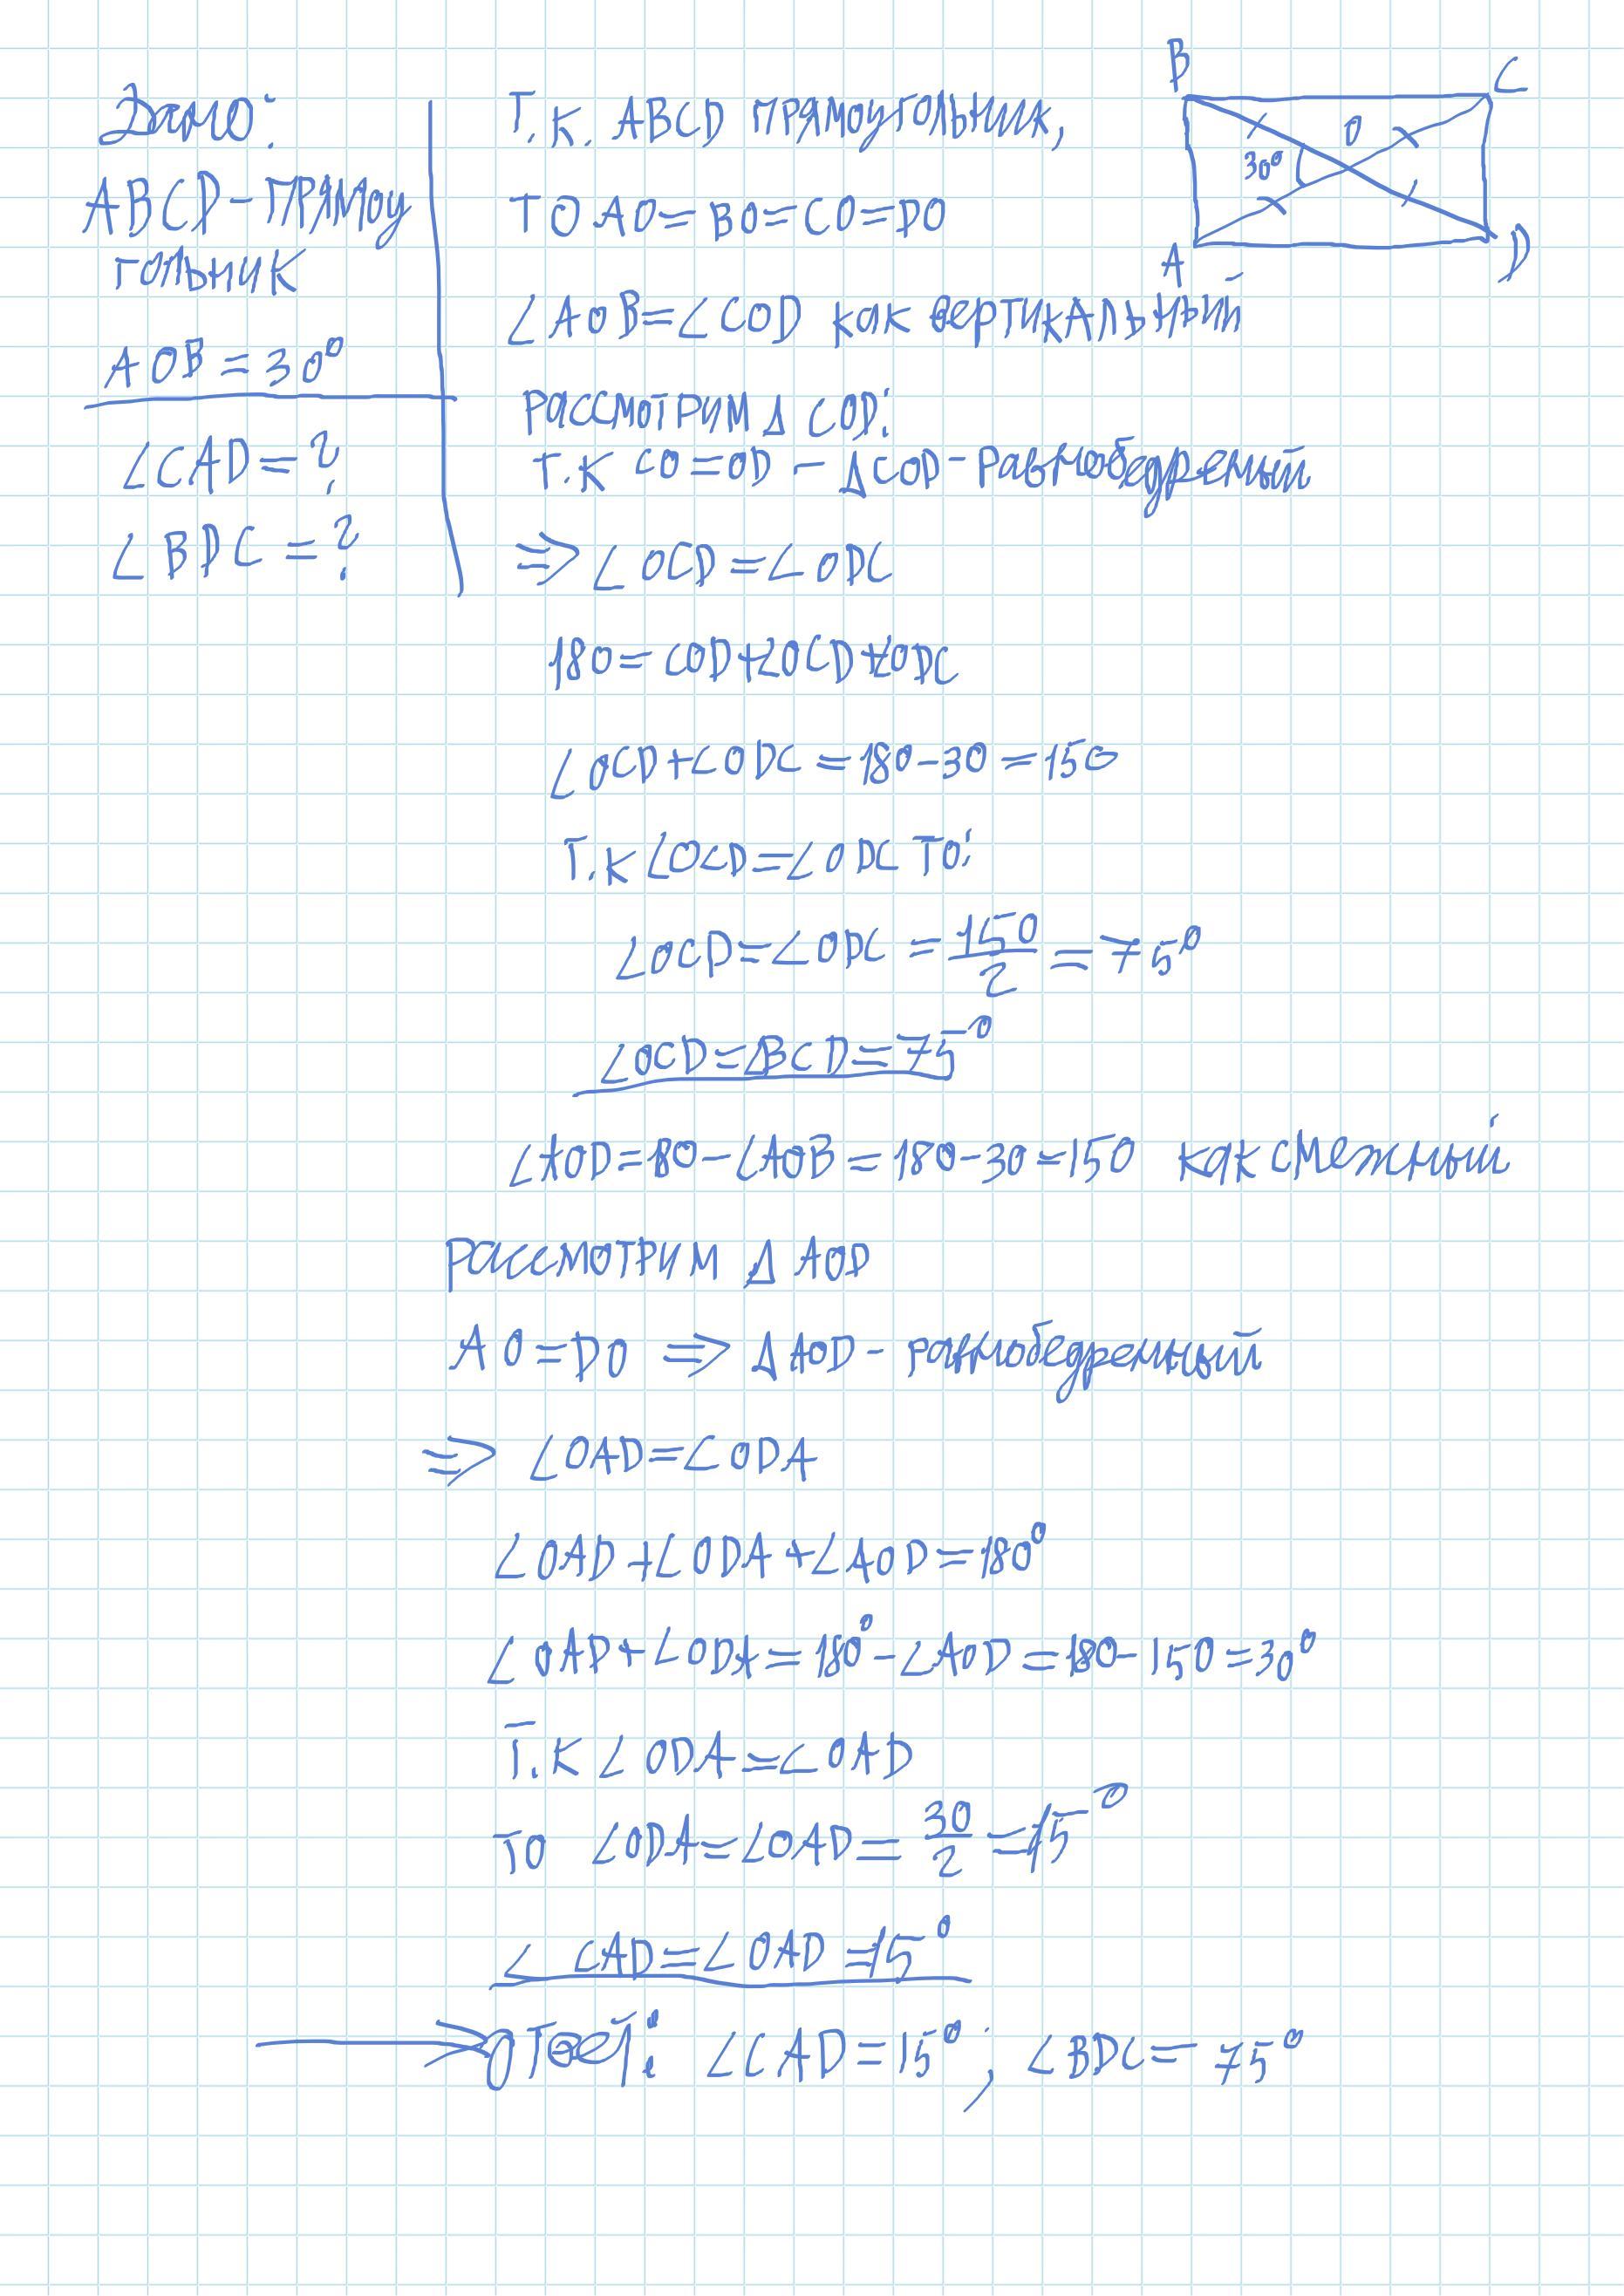 Дано:
ABCD - прямоу
гольник
AOB = 30°
∠CAD = ?
∠BDC = ?
B
C
O
30°
A
D
Т.к. ABCD прямоугольник,
то AO = BO = CO = DO
∠AOB = ∠COD как вертикальный
Рассмотрим Δ COD:
Т.к CO = OD - ΔCOD - равнобедреный
=> ∠OCD = ∠ODC
180 = COD + ∠OCD + ∠ODC
∠OCD + ∠ODC = 180 - 30 = 150
Т.к ∠OCD = ∠ODC то:
∠OCD = ∠ODC = 150/2 = 75°
∠OCD = ∠BCD = 75°
∠AOD = 180 - ∠AOB = 180 - 30 = 150 как смежный
Рассмотрим Δ AOD
AO = DO => ΔAOD - равнобедренный
=> ∠OAD = ∠ODA
∠OAD + ∠ODA + ∠AOD = 180°
∠OAD + ∠ODA = 180° - ∠AOD = 180 - 150 = 30°
Т.к ∠ODA = ∠OAD
то ∠ODA = ∠OAD = 30/2 = 15°
∠ CAD = ∠OAD = 15°
Ответ: ∠CAD = 15° ; ∠BDC = 75°